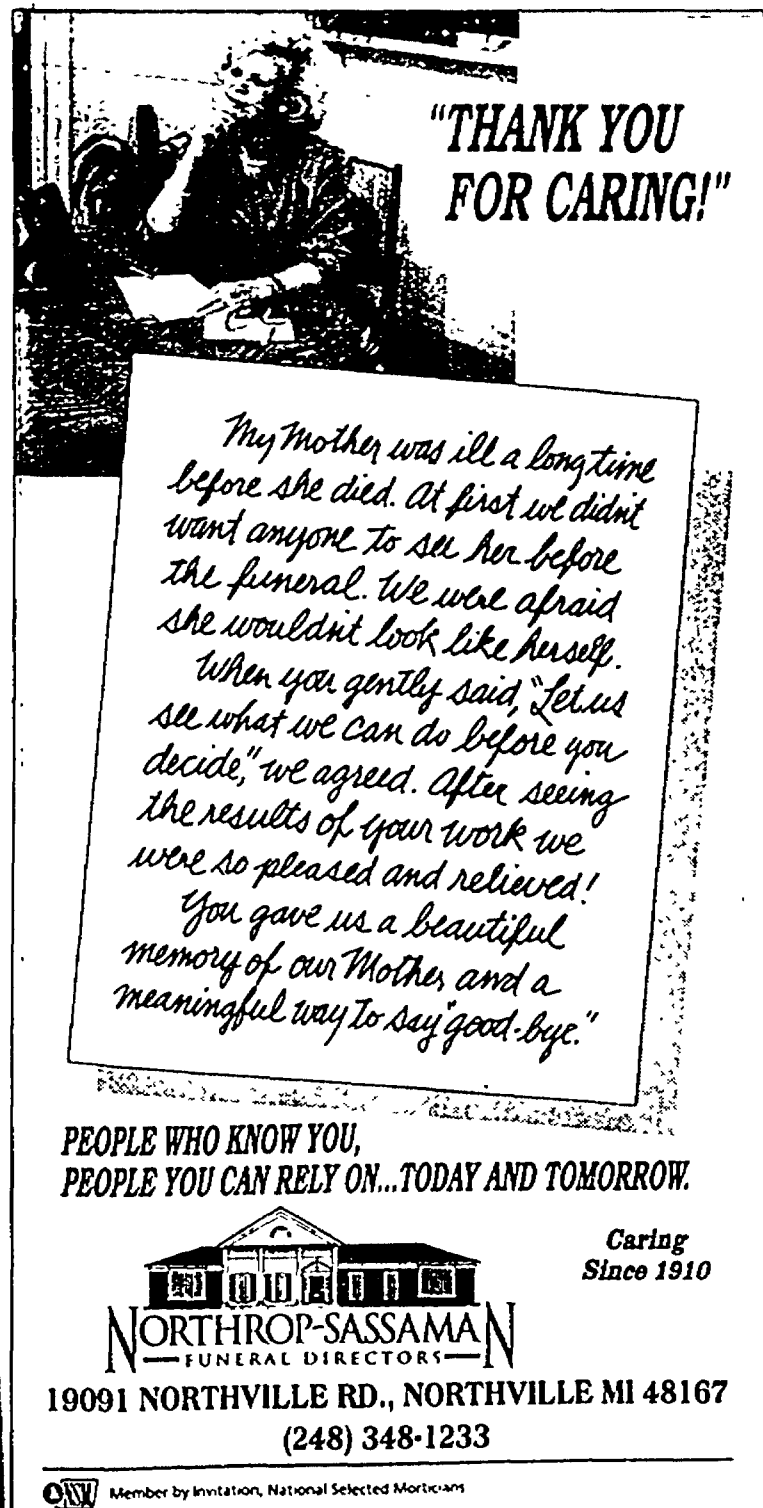 "THANK YOU
FOR CARING!"
My Mother was ill a long time
before she died. At first we didn't
want anyone to see her before
the funeral. We were afraid
she wouldn't look like herself.
When you gently said, "Let us
see what we can do before you
decide," we agreed. After seeing
the results of your work we
were so pleased and relieved!
You gave us a beautiful
memory of our Mother and a
meaningful way to say "good-bye."
PEOPLE WHO KNOW YOU,
PEOPLE YOU CAN RELY ON...TODAY AND TOMORROW.
Caring
Since 1910
NORTHROP-SASSAMAN
FUNERAL DIRECTORS
19091 NORTHVILLE RD., NORTHVILLE MI 48167
(248) 348-1233
NSM Member by Invitation, National Selected Morticians